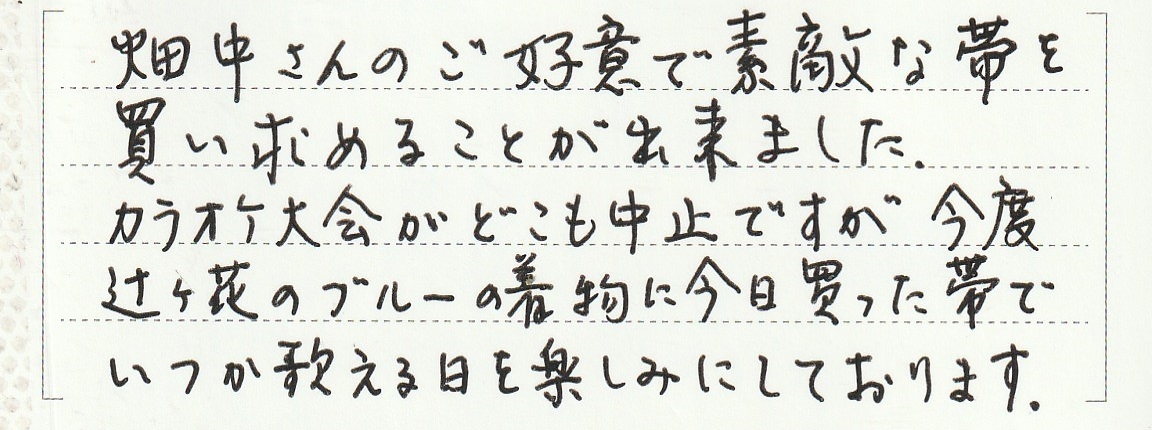 畑中さんのご好意で素敵な帯を
買い求めることが出来ました。
カラオケ大会がどこも中止ですが今度
辻ヶ花のブルーの着物に今日買った帯で
いつか歌える日を楽しみにしております。